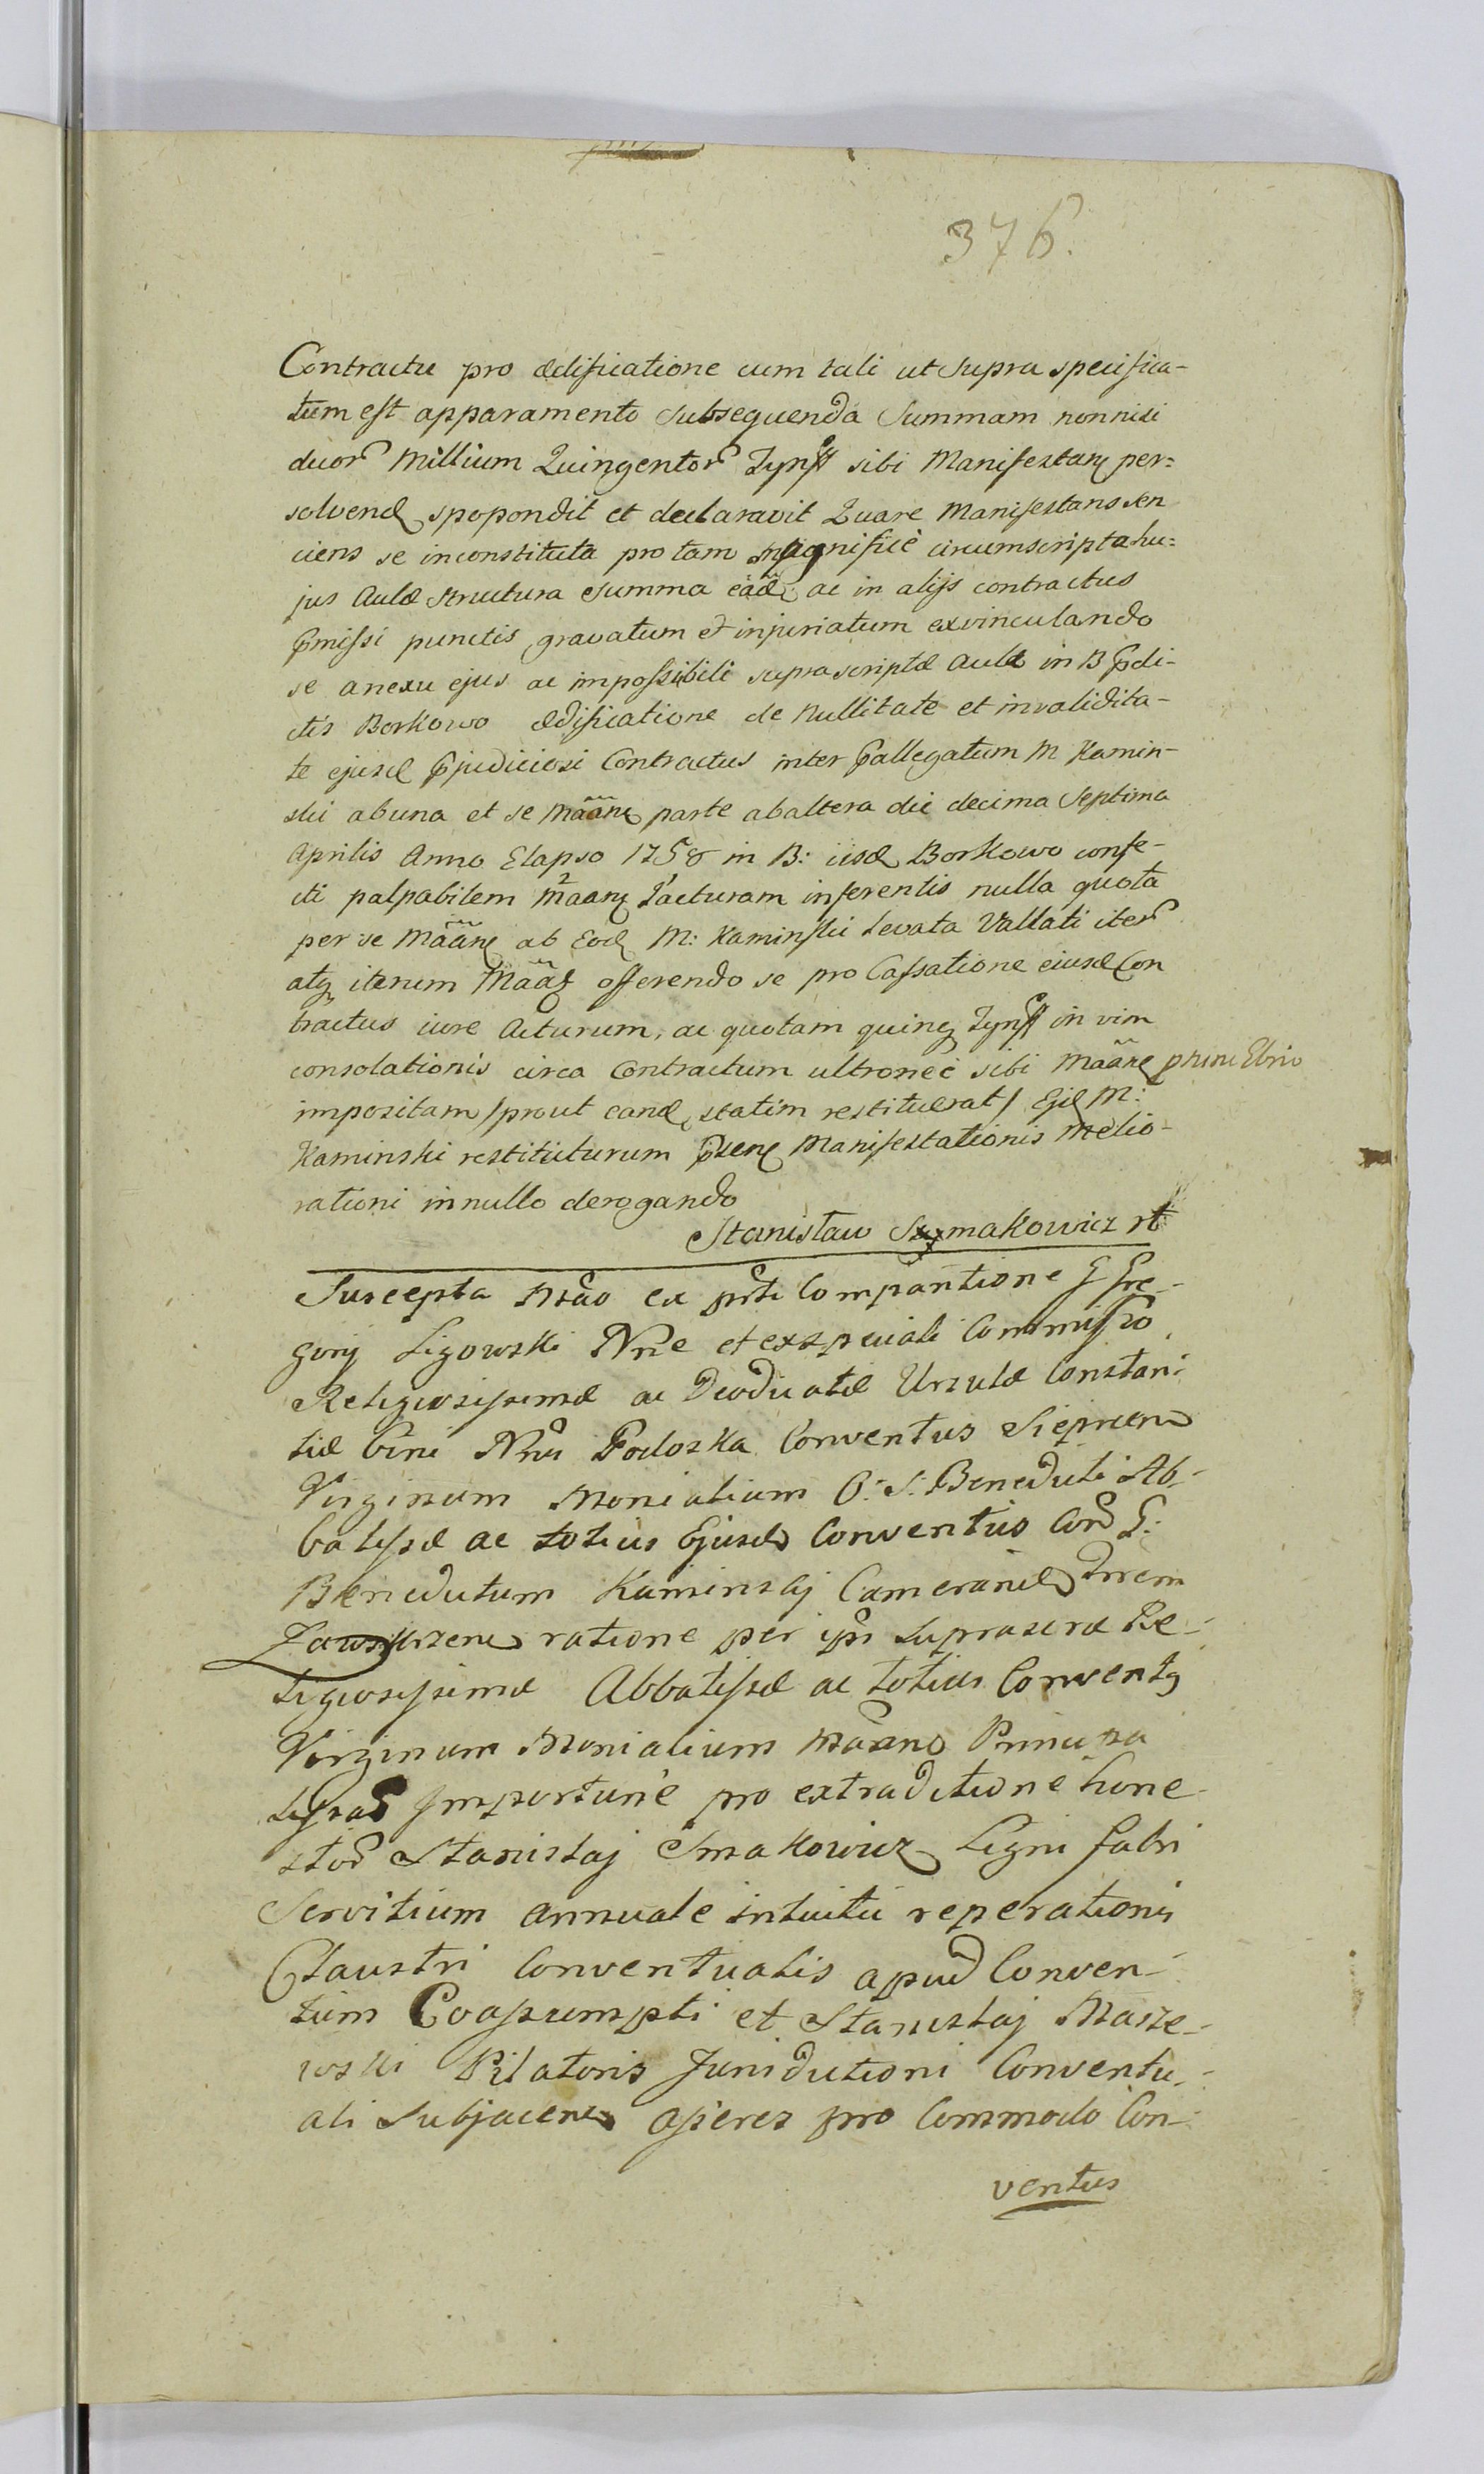 376.
Contractu pro ædificatione cum tali ut supra specifica-
tum est apparamento subsequenda Summam nonnisi
duor Millium Quingentor Tynff sibi Manifestan per=
solvend spopondit et declaravit Quare Manifestans sen
ciens se in constituta pro tam Magnificè circumscripta hu=
jus Aulæ structura summa eãd ac in alijs contractus
pmissi punctis gravatum et injuriatum exvinculando
se anexu ejus ac impossibili suprascriptæ Aulæ in B pdi-
ctis Borkowo ædificatione de Nullitate et invalidita-
te ejusd pjudiciosi Contractus inter pallegatum M Kamin-
ski ab una et se Mããne parte ab altera die decima Septima
Aprilis Anno Elapso 1758 in B: iisd Borkowo confe-
cti palpabilem Mãan Jacturam inferentis nulla quota
per se Mããne ab Eod M: Kaminski Levata Vallati iter
atq iterum Mãa offerendo se pro Cassatione eiusd Con
tractus iure Acturum, ac quotam quinq Tynff in vim
consolationis circa Contractum ultroneè sibi Mããne Ebrio
impositam /prout eand statim restituerat/ Ejd M:
Kaminski restituturum psen Manifestationis Melio-
rationi in nullo derogando
Stanisław Szymakowicz
Suscepta Mão ex psti Comparitione G Gre-
gorij Ligowski Nne et ex speciali Commisso
Religiosissimæ ac Deodicatæ Ursulæ Constan-
tiæ Podoska Conventus Sieprcen
Virginum Monialium O: S: Benedicti Ab-
batissæ ac totius Ejusd Conventus Cor G:
Benedictum Kaminski Camerarid Trrem
Zawskrzen ratione per ips suprascræ Re-
ligiosissimæ Abbatissæ ac totius Conventq
Virginum Monialium Principa
Importunè pro extraditione hone-
stor Stanislaj Smakowicz Ligni fabri
Servitium annuale intuitu reperationis
Claustri Conventualis apud Conven-
tum Coassumpti et Stanislaj Masze-
wski Pilatoris Jurisdictioni Conventu-
ali Subjacen asseres pro Commodo Con-
ventus